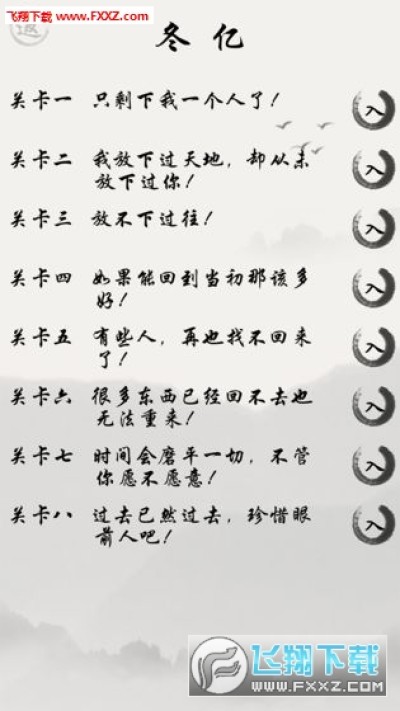 飞翔下载 www.FXXZ.com
返
冬 亿
关卡一 只剩下我一个人了！ 入
关卡二 我放下过天地，却从未
放下过你！ 入
关卡三 放不下过往！ 入
关卡四 如果能回到当初那该多
好！ 入
关卡五 有些人，再也找不回来
了！ 入
关卡六 很多东西已经回不去也
无法重来！ 入
关卡七 时间会磨平一切，不管
你愿不愿意！ 入
关卡八 过去已然过去，珍惜眼
前人吧！ 入
飞翔下载
WWW.FXXZ.COM